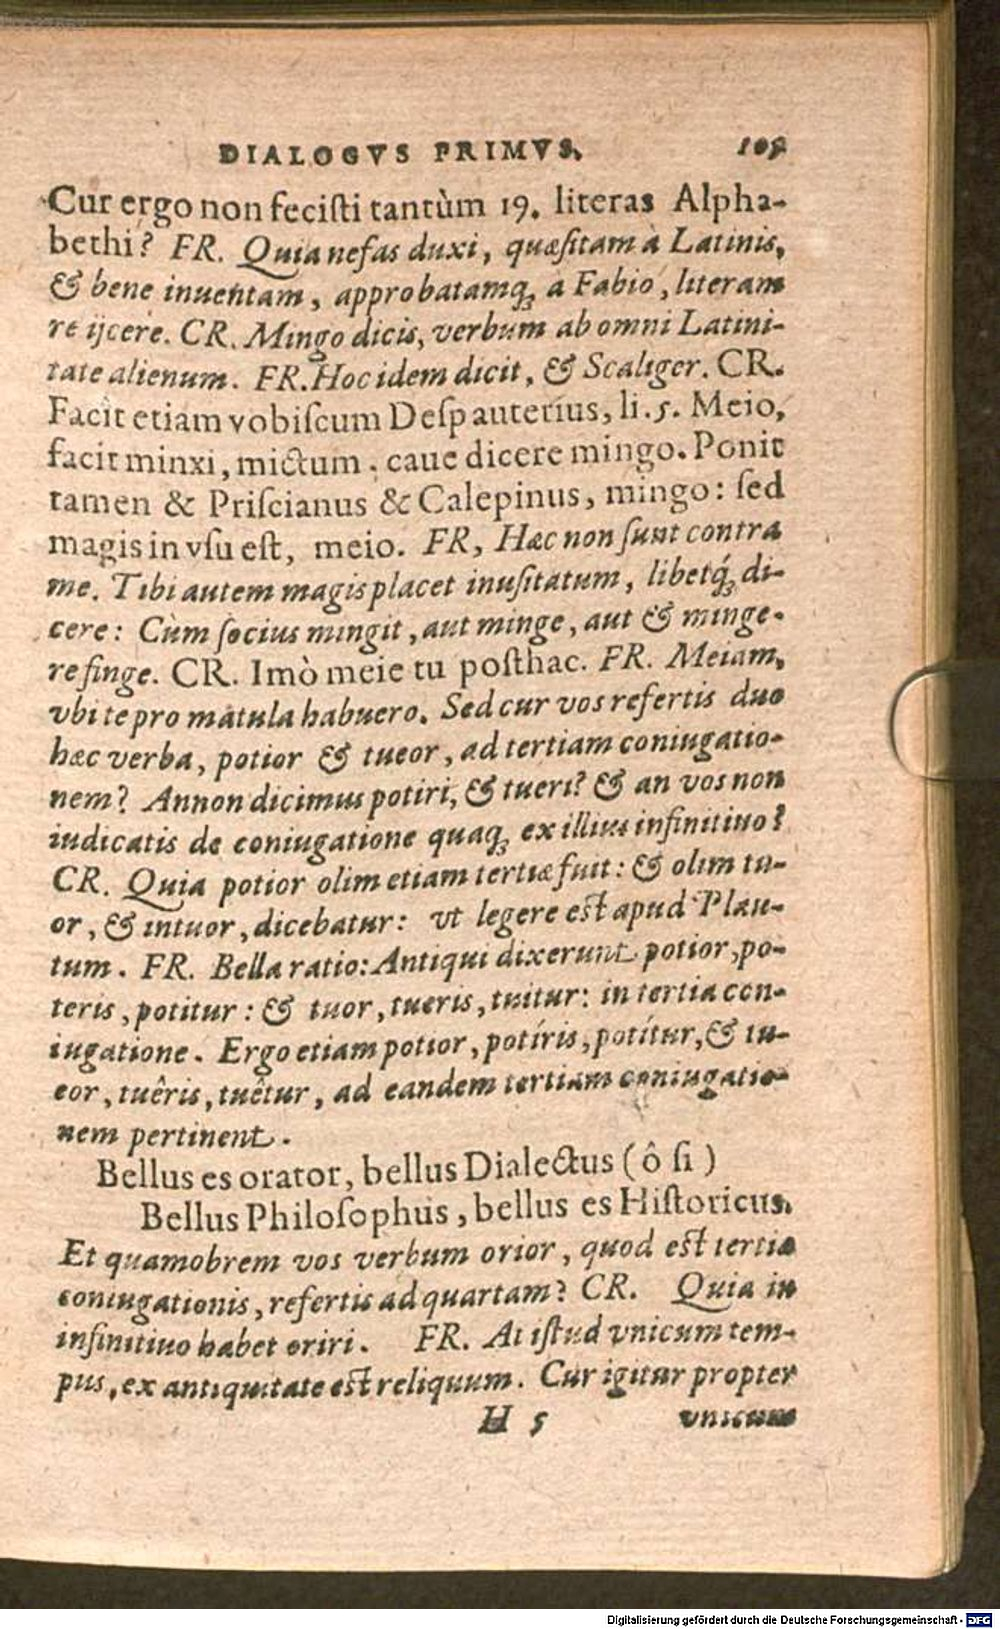 DIALOGVS PRIMVS. 105
Cur ergo non feciſti tantùm 19. literas Alpha-
bethi? FR. Quia nefas duxi, quæſitam à Latinis,
& bene inuentam, approbatamq́ꝫ a Fabio, literam
reijcere. CR. Mingo dicis, verbum ab omni Latini-
tate alienum. FR. Hoc idem dicit, & Scaliger. CR.
Facit etiam vobiſcum Deſpauterius, li. 5. Meio,
facit minxi, mictum. caue dicere mingo. Ponit
tamen & Priſcianus & Calepinus, mingo: ſed
magis in vſu eſt, meio. FR, Hæc non ſunt contra
me. Tibi autem magis placet inuſitatum, libetq́ꝫ di-
cere: Cùm ſocius mingit, aut minge, aut & minge-
re finge. CR. Imò meie tu poſthac. FR. Meiam,
vbi te pro matula habuero. Sed cur vos refertis duo
hæc verba, potior & tueor, ad tertiam coniugatio-
nem? Annon dicimus potiri, & tueri? & an vos non
iudicatis de coniugatione quaqꝫ ex illius infinitiuo?
CR. Quia potior olim etiam tertiæ fuit: & olim tu-
or, & intuor, dicebatur: vt legere eſt apud Plau-
tum. FR. Bella ratio: Antiqui dixerunt potior, po-
teris, potitur: & tuor, tueris, tuitur: in tertia con-
iugatione. Ergo etiam potior, potíris, potítur, & tu-
eor, tuêris, tuêtur, ad eandem tertiam coniugatio-
nem pertinent.
Bellus es orator, bellus Dialectus (ô ſi)
Bellus Philoſophus, bellus es Hiſtoricus.
Et quamobrem vos verbum orior, quod eſt tertiæ
coniugationis, refertis ad quartam? CR. Quia in
infinitiuo habet oriri. FR. At iſtud vnicum tem-
pus, ex antiquitate eſt reliquum. Cur igitur propter
H 5 vnicum
Digitalisierung gefördert durch die Deutsche Forschungsgemeinschaft - DFG